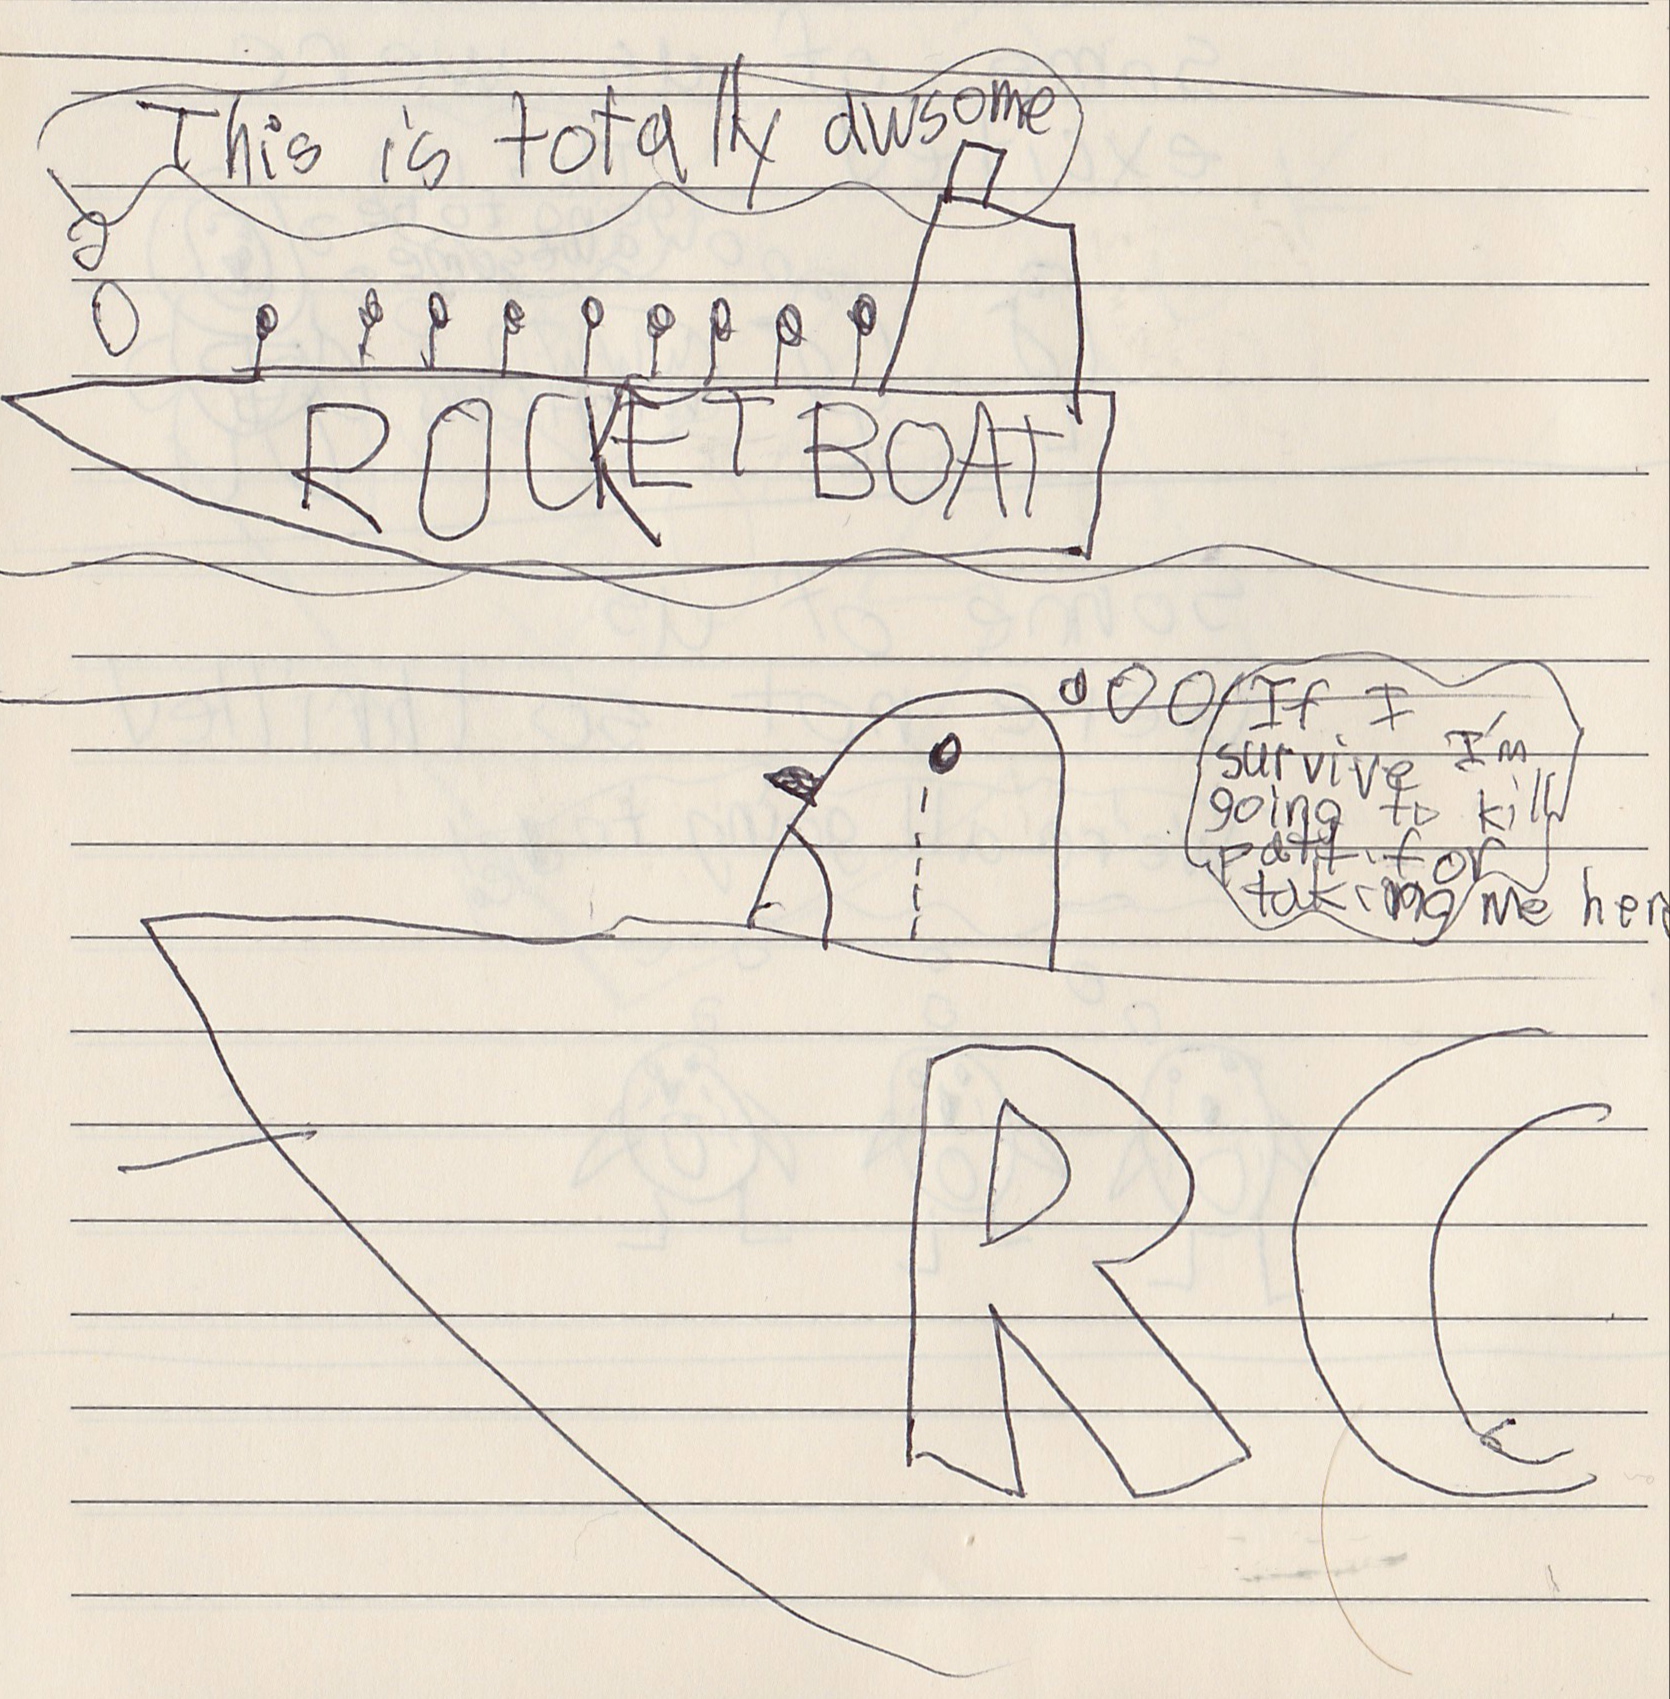 This is totally awsome
ROCKET BOAT
If I
survive I'm
going to kill
patt for
taking me here
RC